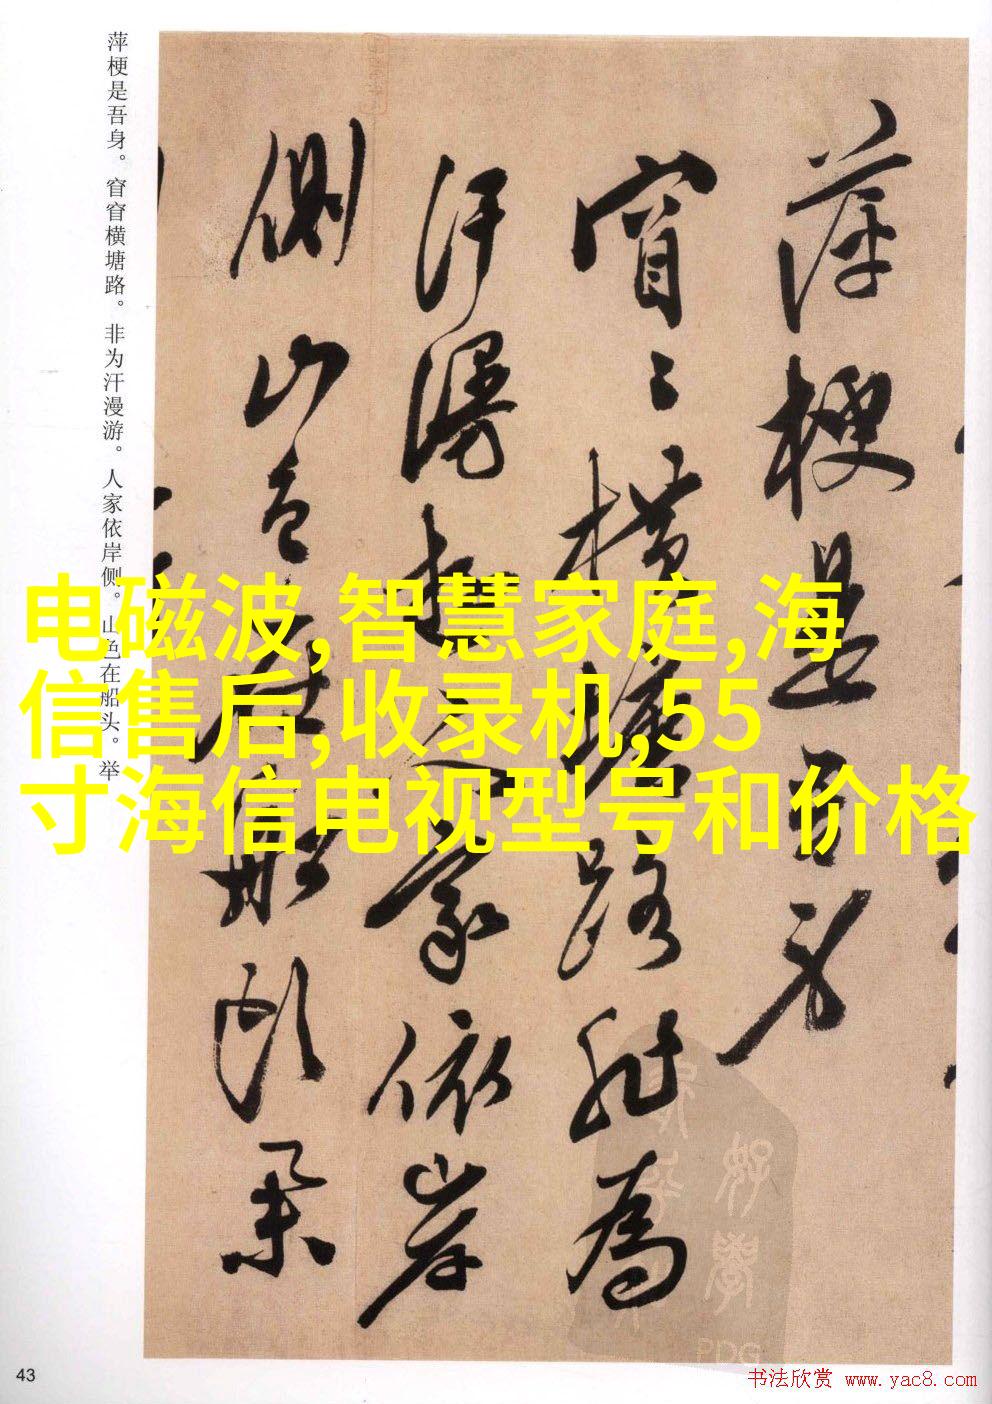 萍梗是吾身。窅窅横塘路。非为汗漫游。人家依岸侧。山色在船头。举
萍梗是吾身
窅〻横塘路非为
汗漫游人家依岸
侧山色在船头举
电磁波,智慧家庭,海
信售后,收录机,55
寸海信电视型号和价格
好学
PDG
43
书法欣赏 www.yac8.com